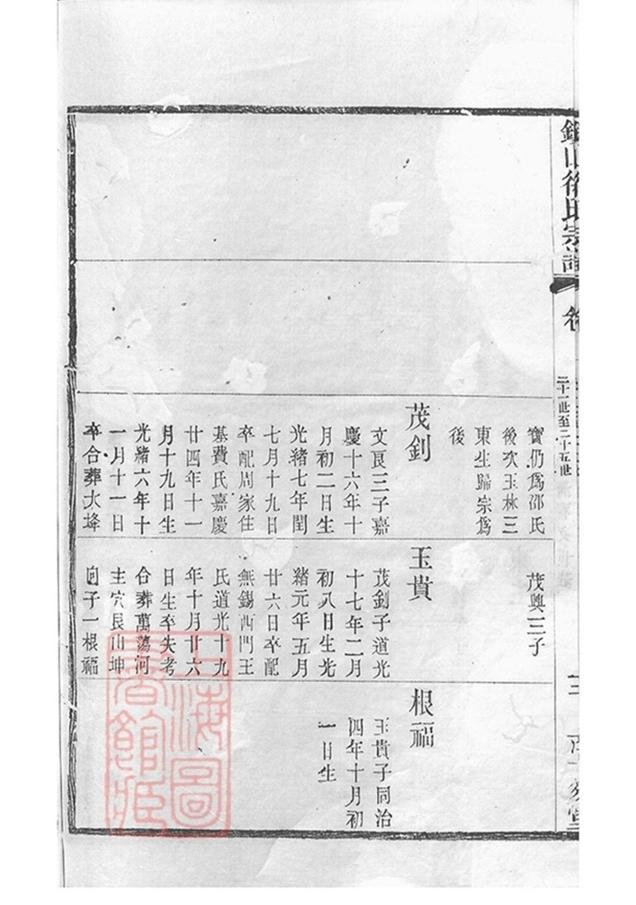 徐氏宗譜
二十一世至二十五世
寶仍爲邵氏
後次玉林三
東生歸宗爲
後
茂釗
文良三子嘉
慶十六年十
月初二日生
光緒七年閏
七月十九日
卒配周家住
基費氏嘉慶
廿四年十一
月十九日生
光緒六年十
一月十一日
卒合葬大垰
茂興三子
玉貴
茂釗子道光
十七年二月
初八日生光
緒元年五月
廿六日卒配
無錫西門王
氏道光十九
年十月廿六
日生卒失考
合葬萬蕩河
主穴艮山坤
向子一根福
根福
玉貴子同治
四年十月初
一日生
海圖